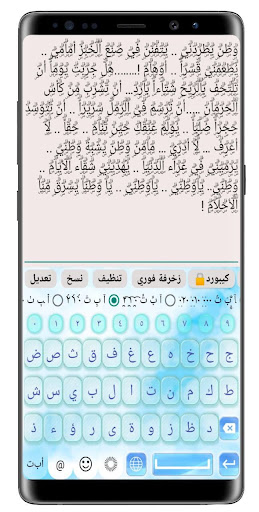 وَطَنٌ يَطْرُدُنِيْ .. يَتَفَنَّنُ فِيْ صُنْعِ الْخُبْزِ أَمَامِيْ ..
يُطْعِمُنِيْ قَسْرَاً .. أَوْهَامَاً !.......هَلْ جَرَّبْتَ يَوْمَاً أَنْ
تَلْتَحِفَ بِالرِّيْحِ شِتَاءً بَارِدْ.. أَنْ تَشْرَبَ مِنْ كَأْسِ
الْحِرْمَانْ .... أَنْ تَرْسُمَ فِيْ الرَّمْلِ سَرِيْرَاً .. أَنْ تَتَوَسَّدَ
حَجَرَاً صَلْبَاً .. يُؤْلِمُ عُنُقَكَ حِيْنَ تَنَامْ .. حَقَّاً .. لَا
أَعْرِفْ ... لَا أَدْرِيْ ... مَامِنْ وَطَنٍ يُشْبِهُ وَطَنِيْ ..
يَرْمِيْنِيْ فِيْ عَرَاءِ الدُّنْيَاْ .. يُهْدِيْنِيْ شَقَاءَ الْأَيَّامْ ..
وَطَنِيْ.. يَاوَطَنِيْ .. يَاوَطَنِيْ .. يَاْ وَطَنَاً يَسْرِقُ مِنَّاْ
الْأَحْلَامْ !
كيبورد زخرفة فوري تنظيف نسخ تعديل
٠ ١ ٢ ٣ ٤ ٥ ٦ ٧ ٨ ٩
ج ح خ ه ع غ ف ق ث ص ض
ط ك م ن ت ا ل ب ي س ش
د ظ ز و ة ى ر ؤ ء ذ
أب‌ت @